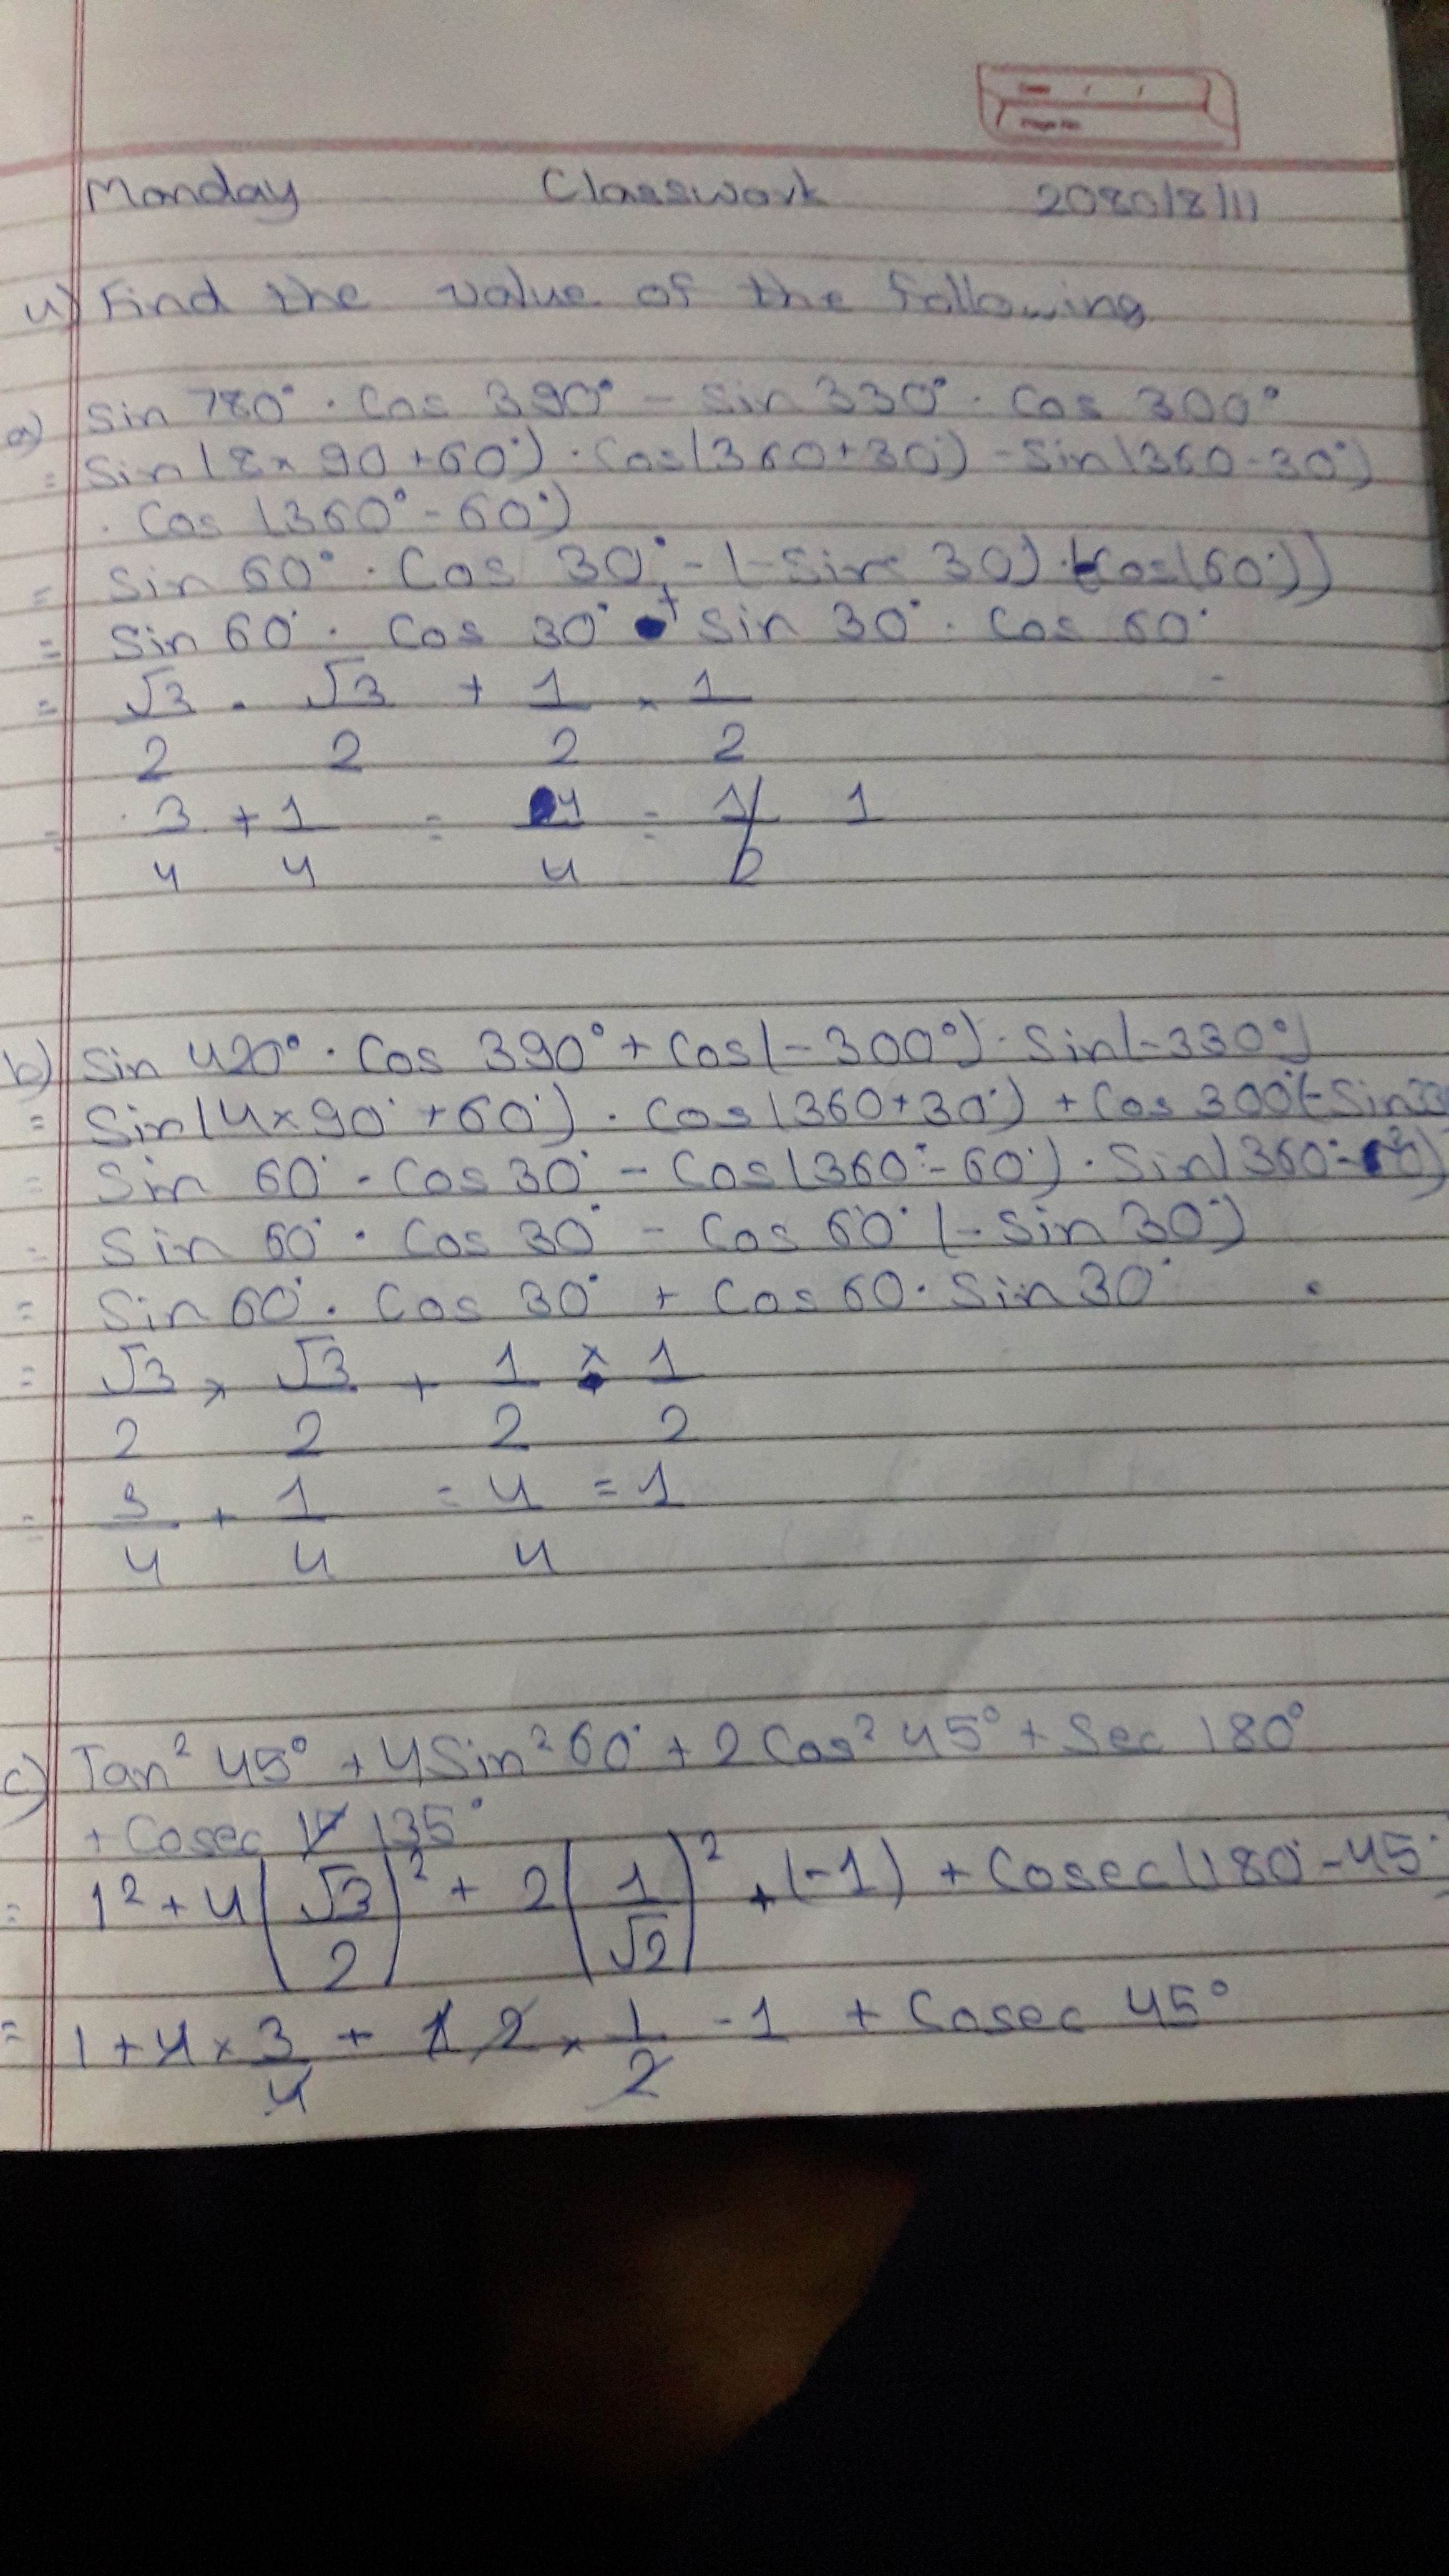 Date / /
Page No.
Monday Classwork 2080/8/11
4) Find the value of the following
a) Sin 780° . Cos 390° - Sin 330° . Cos 300°
= Sin(8×90+60°) . Cos(360+30°) - Sin(360-30°)
. Cos (360°-60°)
= Sin 60° . Cos 30° - (-Sin 30) . Cos(60°))
= Sin 60° . Cos 30° + Sin 30° . Cos 60°
= √3/2 . √3/2 + 1/2 × 1/2
= 3/4 + 1/4 = 4/4 = 1
b) Sin 420° . Cos 390° + Cos(-300°) . Sin(-330°)
= Sin(4×90°+60°) . Cos(360+30°) + Cos 300°(-Sin
= Sin 60° . Cos 30° - Cos(360°-60°) . Sin(360°-
= Sin 60° . Cos 30° - Cos 60° (-Sin 30°)
= Sin 60° . Cos 30° + Cos 60 . Sin 30°
= √3/2 × √3/2 + 1/2 × 1/2
= 3/4 + 1/4 = 4/4 = 1
c) Tan² 45° + 4Sin² 60° + 2Cos² 45° + Sec 180°
+ Cosec 135°
= 1² + 4(√3/2)² + 2(1/√2)² + (-1) + Cosec(180°-45°
= 1 + 4 × 3/4 + 2 × 1/2 - 1 + Cosec 45°